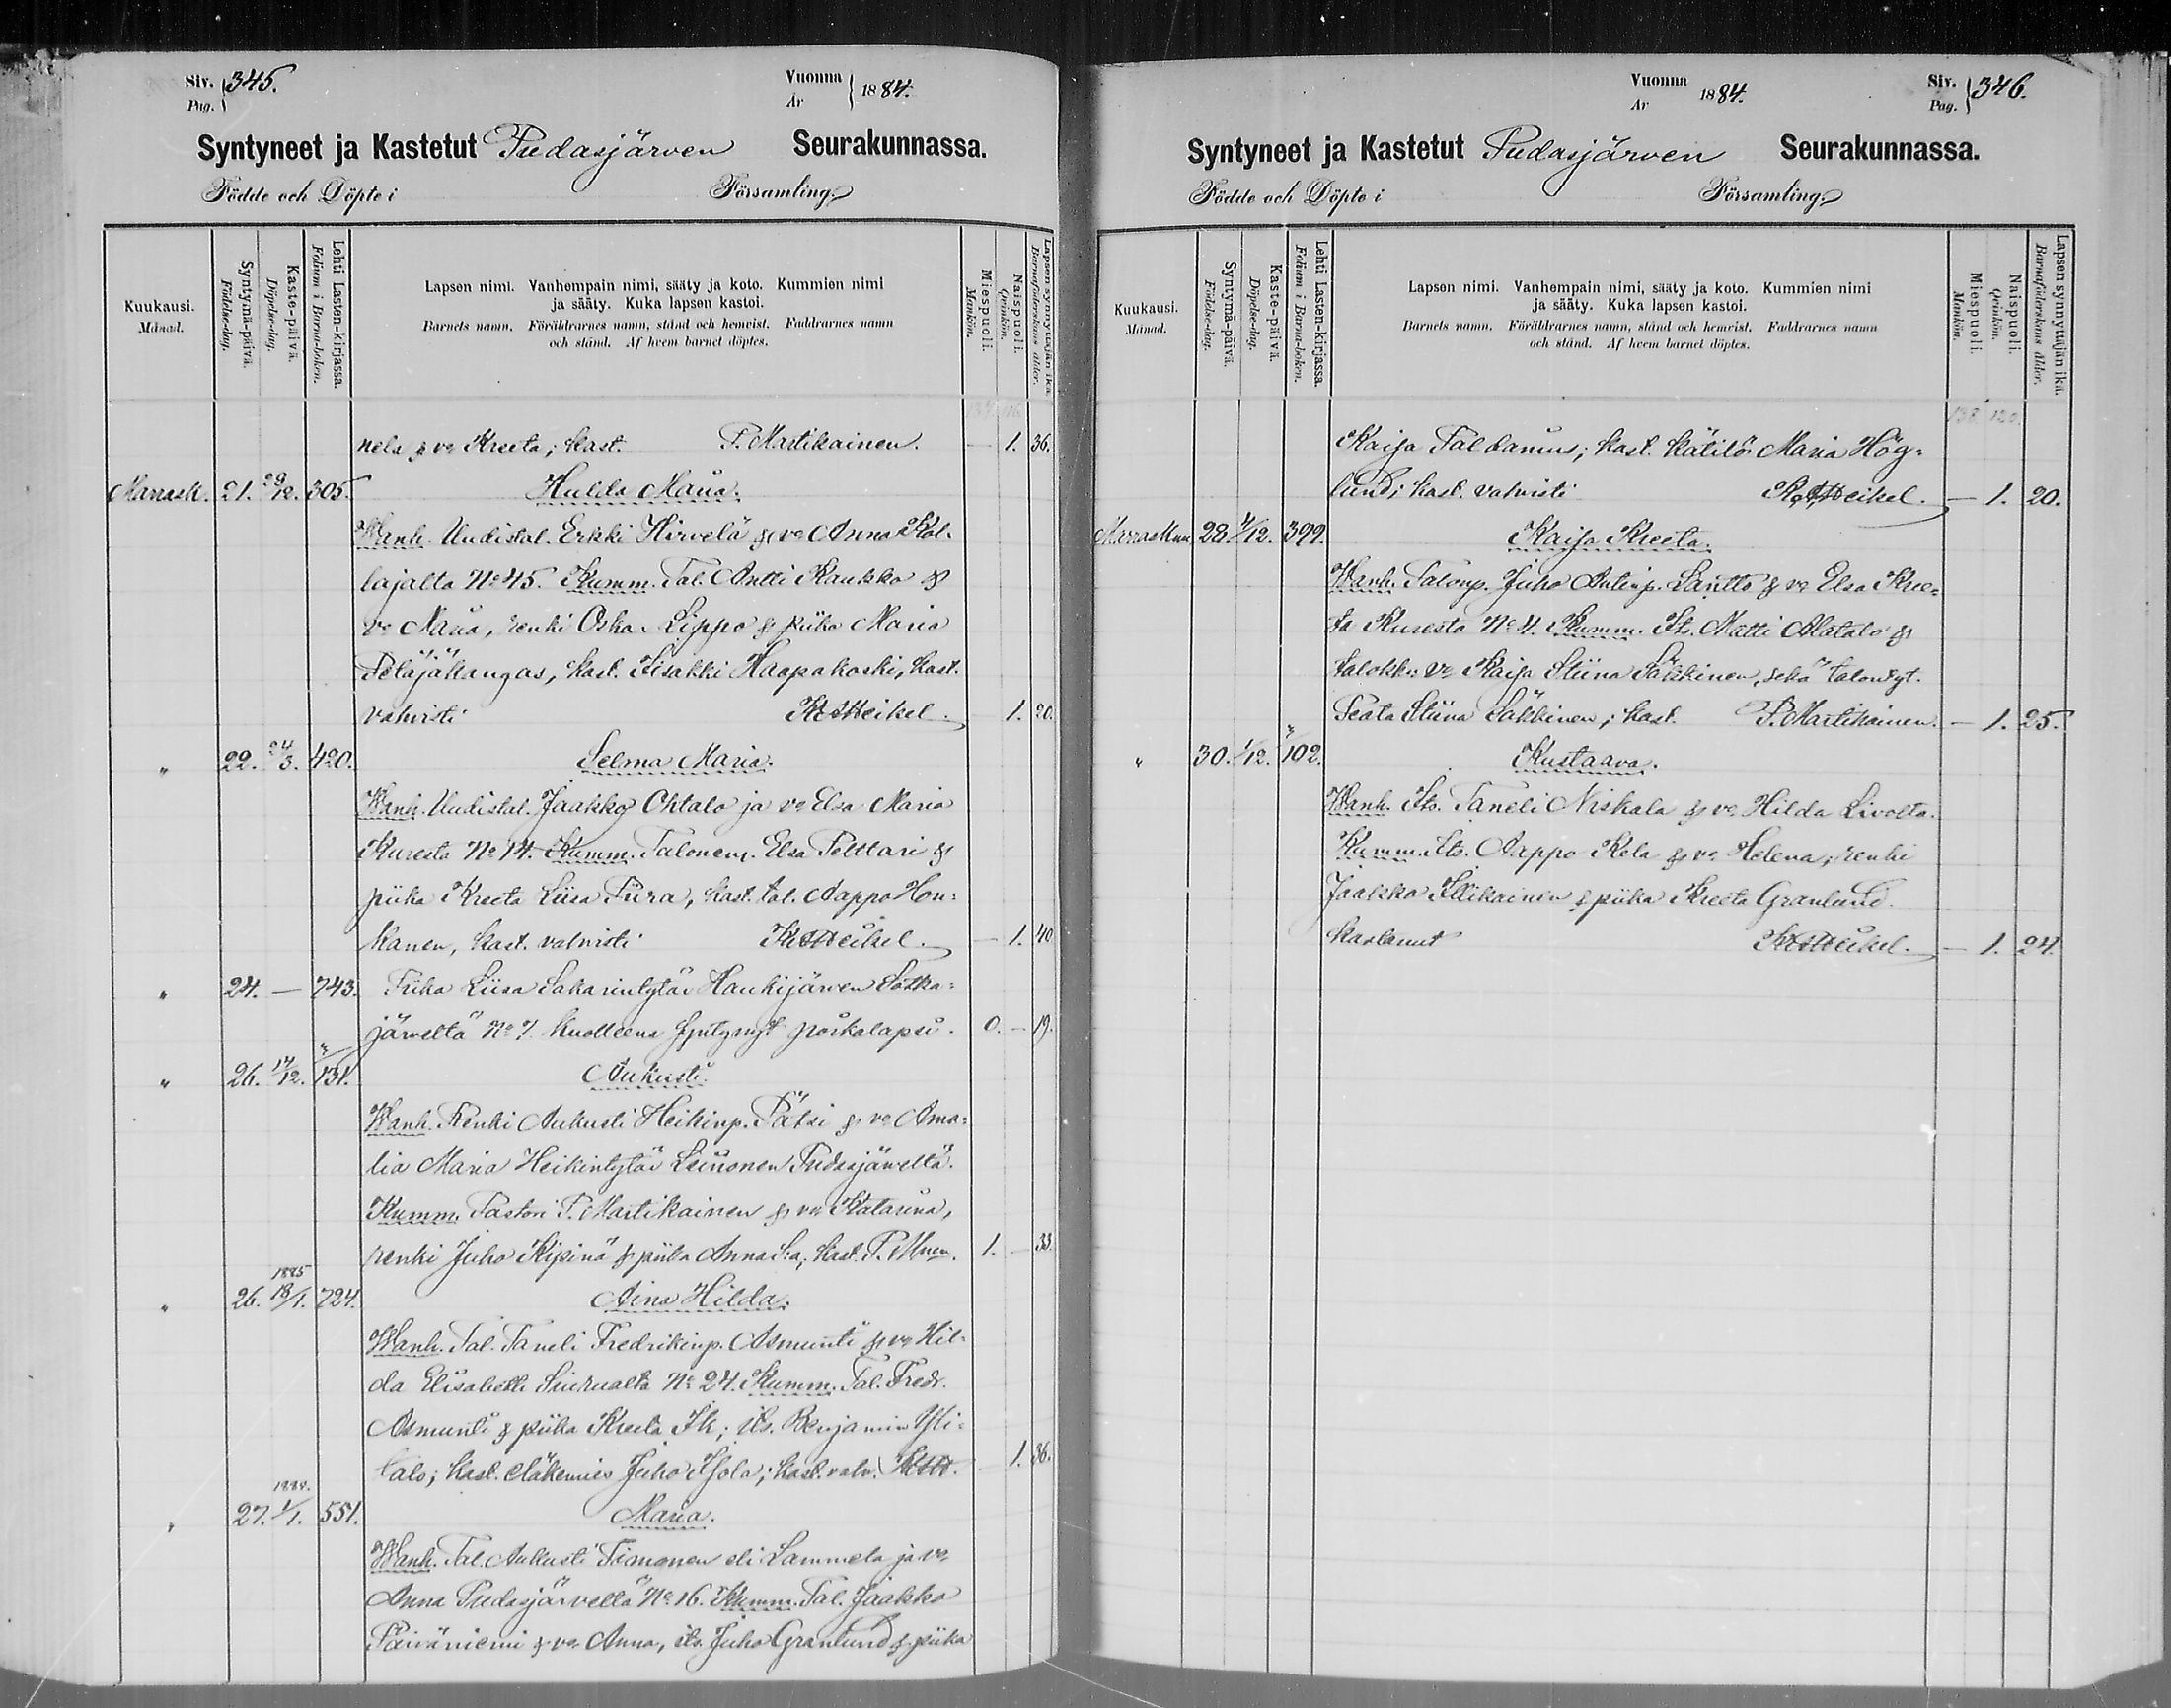 Siv. Pag. } 345.
Vuonna År } 1884.
Syntyneet ja Kastetut Pudasjärven Seurakunnassa.
Födde och Döpte i Församling.
Kuukausi. Månad.
Syntymä-päivä. Födelse-dag.
Kaste-päivä. Döpelse-dag.
Lehti Lasten-kirjassa. Folium i Barna-boken.
Lapsen nimi. Vanhempain nimi, sääty ja koto. Kummien nimi
ja sääty. Kuka lapsen kastoi.
Barnets namn. Föräldrarnes namn, stånd och hemvist. Faddrarnes namn
och stånd. Af hvem barnet döptes.
Miespuoli. Mankön.
Naispuoli. Qvinkön.
Lapsen synnyttäjän ikä. Barnaföderskans ålder.
nela & vo Kreeta; kast. P. Martikainen. — 1. 36.
Marrask. 21. 29/12. 305. Hulda Maria.
Wanh. Uudistal. Erkki Hirvelä & vo Anna Kol-
lajalta No 45. Kumm. Tal. Antti Kaukko &
vo Maria, renki Oskar Lippo & piika Maria
Peläjäkangas, kast. Iisakki Haapakoski, kast.
vahvisti K. A. Heikel. 1. 20.
" 22. 24/3. 420. Selma Maria.
Wanh. Uudistal. Jaakko Ohtalo ja vo Elsa Maria
Kuresta No 14. Kumm. Talonem. Elsa Pelttari &
piika Kreeta Liisa Piira, kast. tal. Aappo Hon=
kanen, kast. vahvisti K. A. Heikel. — 1. 40
" 24. — 743. Piika Liisa Sakarintytär Haukijärven Sotka=
järveltä No 7. kuolleena syntynyt poikalapsi. 0. — 19.
" 26. 14/12. 131. Aukusti.
Wanh. Renki Aukusti Heikinp. Pätsi & vo Ama=
lia Maria Heikintytär Leinonen Pudasjärveltä.
Kumm. Pastori P. Martikainen & vo Katarina,
renki Juho Kipinä & piika Anna S:a, kast. P. Mnen. 1. — 33.
" 26. 1885 18/1. 724. Aina Hilda.
Wanh. Tal. Taneli Fredrikinp. Asmunti & vo Hil-
da Elisabetti Siurualta No 24. Kumm. Tal. Fredr.
Asmunti & piika Kreeta Ik; its. Benjamin Yli=
talo; kast. eläkemies Juho Isola; kast. vahv. K. A. H. 1. 36.
" 27. 1884. 1/1. 551. Maria.
Wanh. Tal. Aukusti Timonen eli Lammela ja vo
Anna Pudasjärveltä No 16. Kumm. Tal. Jaakko
Päiväniemi & vo Anna, its. Juho Granlund & piika
Vuonna År 1884.
Siv. Pag. } 346.
Syntyneet ja Kastetut Pudasjärven Seurakunnassa.
Födde och Döpte i Församling.
Kuukausi. Månad.
Syntymä-päivä. Födelse-dag.
Kaste-päivä. Döpelse-dag.
Lehti Lasten-kirjassa. Folium i Barna-boken.
Lapsen nimi. Vanhempain nimi, sääty ja koto. Kummien nimi
ja sääty. Kuka lapsen kastoi.
Barnets namn. Föräldrarnes namn, stånd och hemvist. Faddrarnes namn
och stånd. Af hvem barnet döptes.
Miespuoli. Mankön.
Naispuoli. Qvinkön.
Lapsen synnyttäjän ikä. Barnaföderskans ålder.
138. 120.
Kaija Taldanius; kast. kätilö Maria Hög=
lund; kast. vahvisti K. A. Heikel. — 1. 20.
Marraskuu 28. 1/12. 399. Kaija Kreeta.
Wanh. Talonp. Juho Antinp. Lantto & vo Elsa Kree=
ta Kuresta No 4. Kumm. Its. Matti Alatalo &
talokk: vo Kaija Stiina Säkkinen, sekä talontyt.
Peata Stiina Säkkinen; kast. P. Martikainen. — 1. 25.
" 30. 1/12. 102. Kustaava.
Wanh. Its. Taneli Niskala & vo Hilda Livolta.
Kumm. Its. Aappo Kela & vo Helena, renki
Jaakko Illikainen & piika Kreeta Granlund.
kastanut K. A. Heikel. — 1. 24.